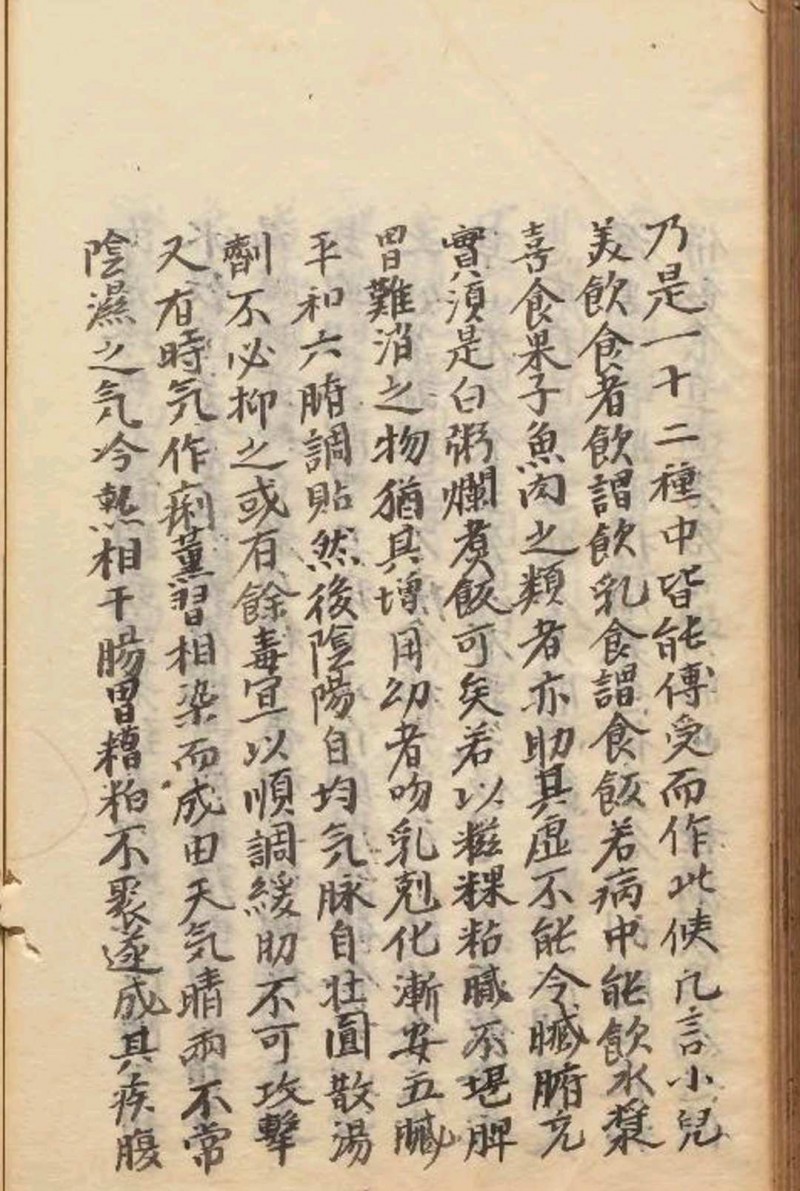 乃是一十二種中皆能傳受而作此候凡言小兒
美飲食者飲謂飲乳食謂食飯若病中能飲水漿
喜食果子魚肉之類者亦助其虛不能令臟腑充
實須是白粥爛煑飯可矣若以糍粿粘膩不堪脾
胃難消之物猶其增用幼者吻乳剋化漸安五臟
平和六腑調貼然後陰陽自均気脉自壮圓散湯
劑不必抑之或有餘毒宣以順調緩肋不可攻擊
又有時気作痢薰習相染而成田天気晴雨不常
陰濕之気冷熱相干腸胃糟粕不聚遂成其疾腹